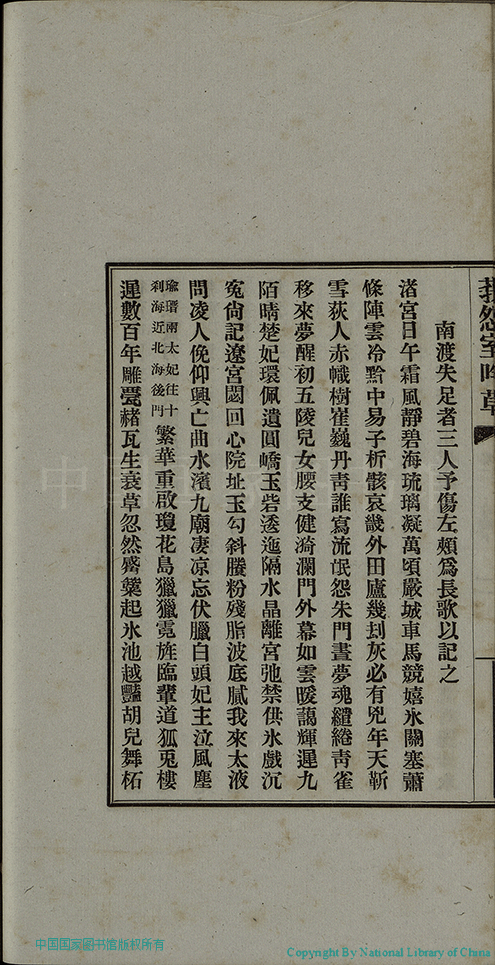 南渡失足者三人予傷左頰爲長歌以記之
渚宮日午霜風靜碧海琉璃凝萬頃嚴城車馬競嬉氷關塞蕭
條陣雲冷黔中易子析骸哀畿外田廬幾刦灰必有兇年天靳
雪荻人赤幟樹崔巍丹青誰寫流氓怨朱門晝夢魂繾綣青雀
移來夢醒初五陵兒女腰支健漪瀾門外幕如雲暖藹輝遲九
陌晴楚妃環佩遺圓嶠玉砦逶迤隔水晶離宮弛禁供氷戲沉
寃尙記遼宮闕回心院址玉勾斜賸粉殘脂波底膩我來太液
問凌人俛仰興亡曲水濱九廟凄凉忘伏臘白頭妃主泣風塵
瑜瑨兩太妃往十
刹海近北海後門
繁華重啟瓊花島獵獵霓旌臨輦道狐兎樓
遲數百年雕甍赭瓦生衰草忽然 起氷池越豔胡兒舞柘
中国国家图书馆版权所有
Copyright By National Library of China